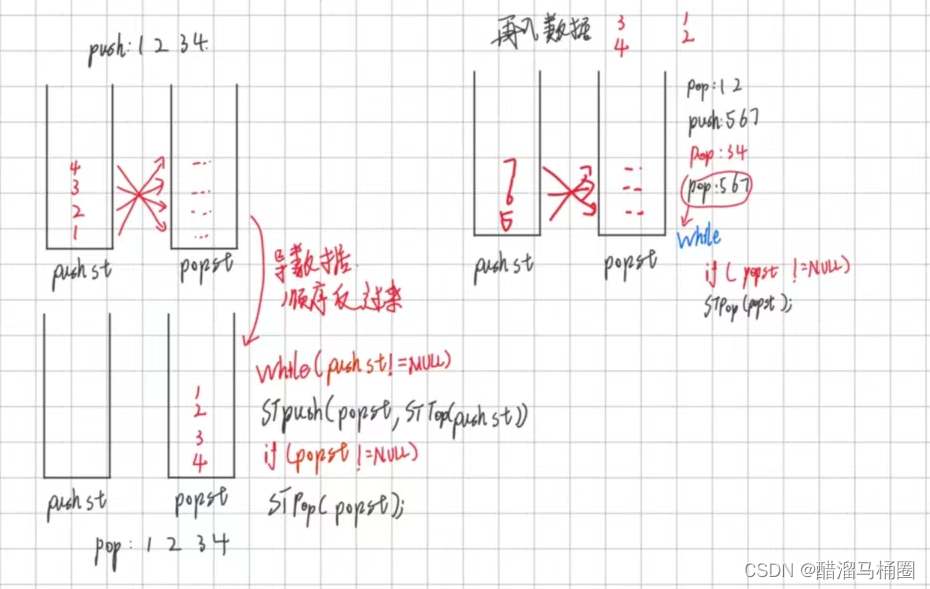 push: 1 2 3 4
4
3
2
1
pushst
popst
导数据
顺序反过来
1
2
3
4
pushst
popst
pop: 1 2 3 4
while(pushst!=NULL)
STpush(popst,STTop(pushst))
if(popst!=NULL)
STPop(popst);
再入数据
3
4
1
2
7
6
5
pushst
popst
pop:1 2
push:567
pop:34
pop:567
while
if(popst!=NULL)
STPop(popst);
CSDN @醋溜马桶圈